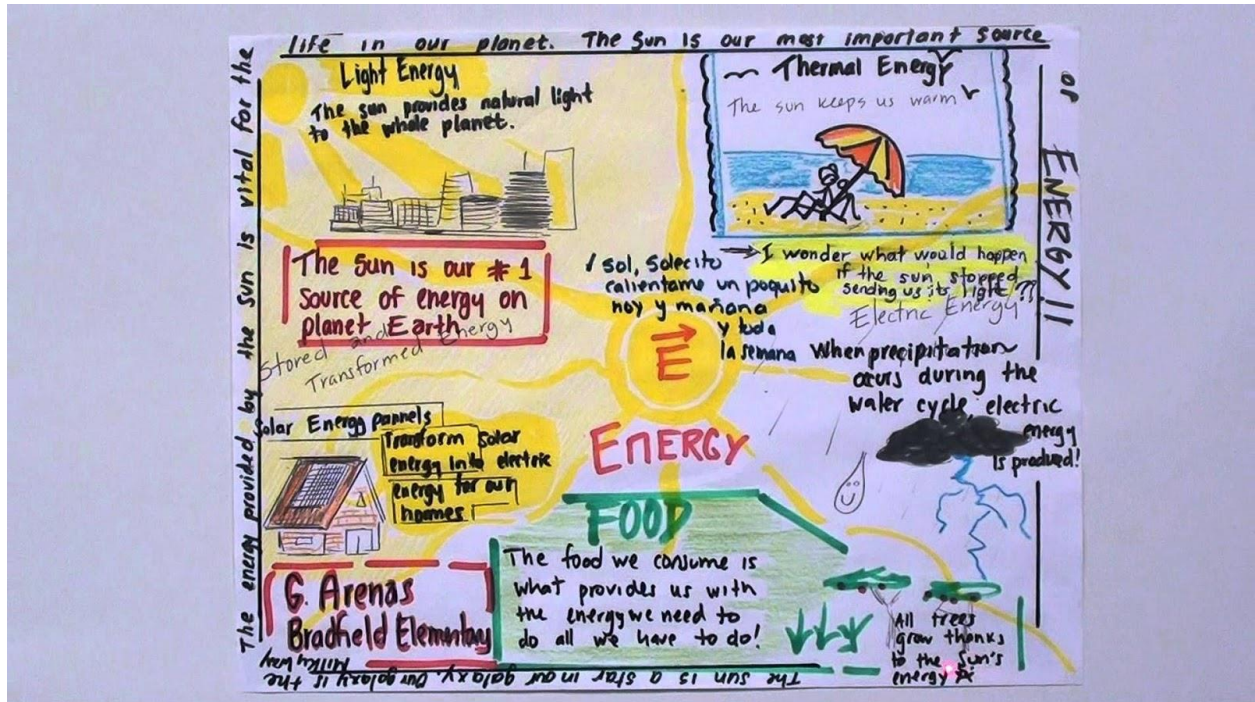 The energy provided by the sun is vital for the
life in our planet. The Sun is our most important source
of ENERGY!!
Light Energy
The sun provides natural light
to the whole planet.
Thermal Energy
The sun keeps us warm
The Sun is our #1
source of energy on
planet Earth
sol, solecito
calientame un poquito
hoy y mañana
y toda
la semana
I wonder what would happen
if the sun stopped
sending us its light??
Electric Energy
Stored and
Transformed Energy
E
ENERGY
When precipitation
occurs during the
water cycle electric
energy
is produced!
Solar Energy pannels
Transform solar
energy into electric
energy for our
homes
FOOD
The food we consume is
what provides us with
the energy we need to
do all we have to do!
G. Arenas
Bradfield Elementary
All trees
grow thanks
to the Sun's
energy
The sun is a star in our galaxy. Our galaxy is the
Milky Way